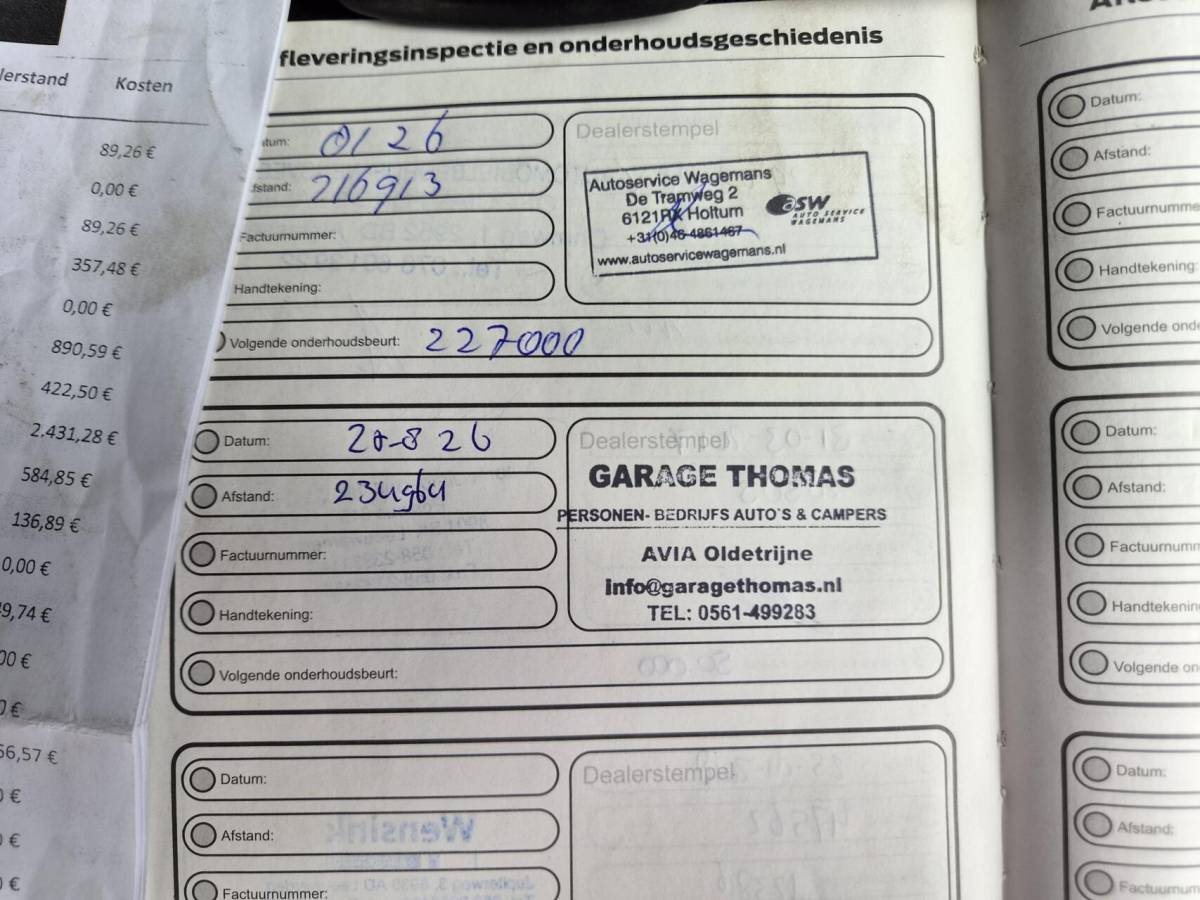 fleveringsinspectie en onderhoudsgeschiedenis
lerstand Kosten
89,26 €
0,00 €
89,26 €
357,48 €
0,00 €
890,59 €
422,50 €
2.431,28 €
584,85 €
136,89 €
0,00 €
9,74 €
00 €
0 €
56,57 €
0 €
€
0 €
tum: 01 26
fstand: 216913
Factuurnummer:
Handtekening:
Volgende onderhoudsbeurt: 227000
Dealerstempel
Autoservice Wagemans
De Tramweg 2
6121RX Holtum
+31(0)46-4861467
www.autoservicewagemans.nl
asw
AUTO SERVICE
WAGEMANS
Datum: 20-8 26
Afstand: 234964
Factuurnummer:
Handtekening:
Volgende onderhoudsbeurt:
Dealerstempel
GARAGE THOMAS
PERSONEN- BEDRIJFS AUTO'S & CAMPERS
AVIA Oldetrijne
info@garagethomas.nl
TEL: 0561-499283
Datum:
Afstand:
Factuurnummer:
Dealerstempel
Datum:
Afstand:
Factuurnumme
Handtekening:
Volgende onde
Datum:
Afstand:
Factuurnumm
Handtekenin
Volgende on
Datum:
Afstand:
Factuurnum